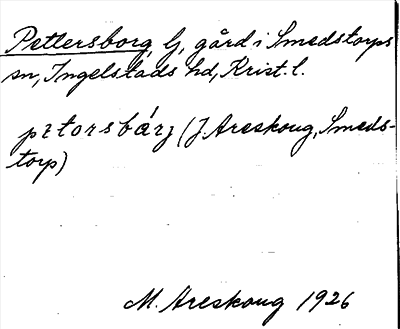 Pettersborg, lj, gård i Smedstorps
sn, Ingelstads hd, Krist. l.
pætorsbárj (J Areskoug, Smeds-
torp)
M. Areskoug 1926